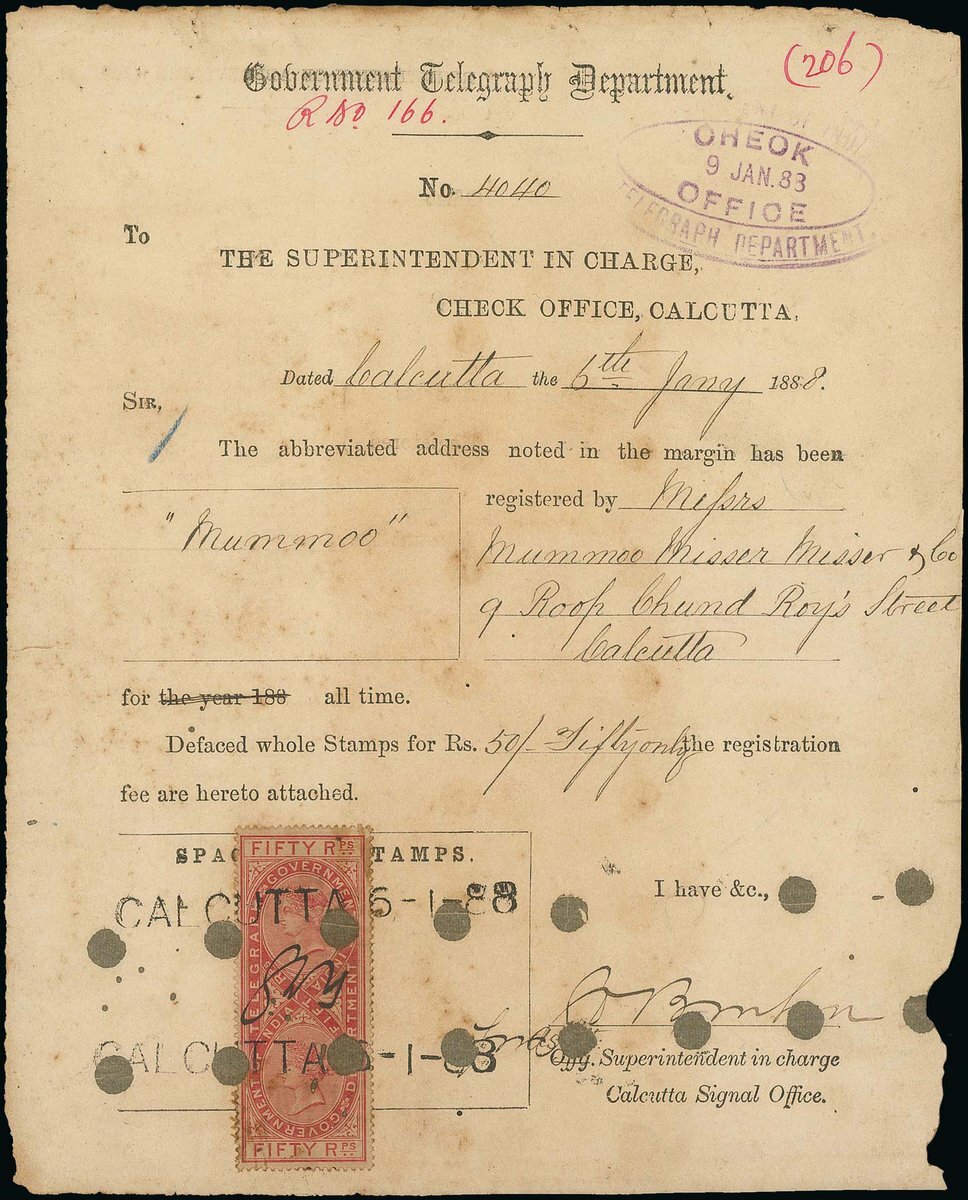 (206)
Government Telegraph Department.
R No. 166.
CHECK
9 JAN.88
OFFICE
TELEGRAPH DEPARTMENT.
No. 4040
To
THE SUPERINTENDENT IN CHARGE,
CHECK OFFICE, CALCUTTA.
Dated Calcutta the 6th Jany 1888.
SIR,
The abbreviated address noted in the margin has been
registered by Messrs
"Mummoo"
Mummoo Misser Misser & Co
9 Roop Chund Roy's Street
Calcutta
for the year 188 all time.
Defaced whole Stamps for Rs. 50/- Fifty only the registration
fee are hereto attached.
SPAC TAMPS.
FIFTY RPS
CALCUTTA 6-1-88
I have &c.,
GOVERNMENT TELEGRAPH DEPARTMENT
CALCUTTA 6-1-88
GOVERNMENT
FIFTY RPS
Offg. Superintendent in charge
Calcutta Signal Office.